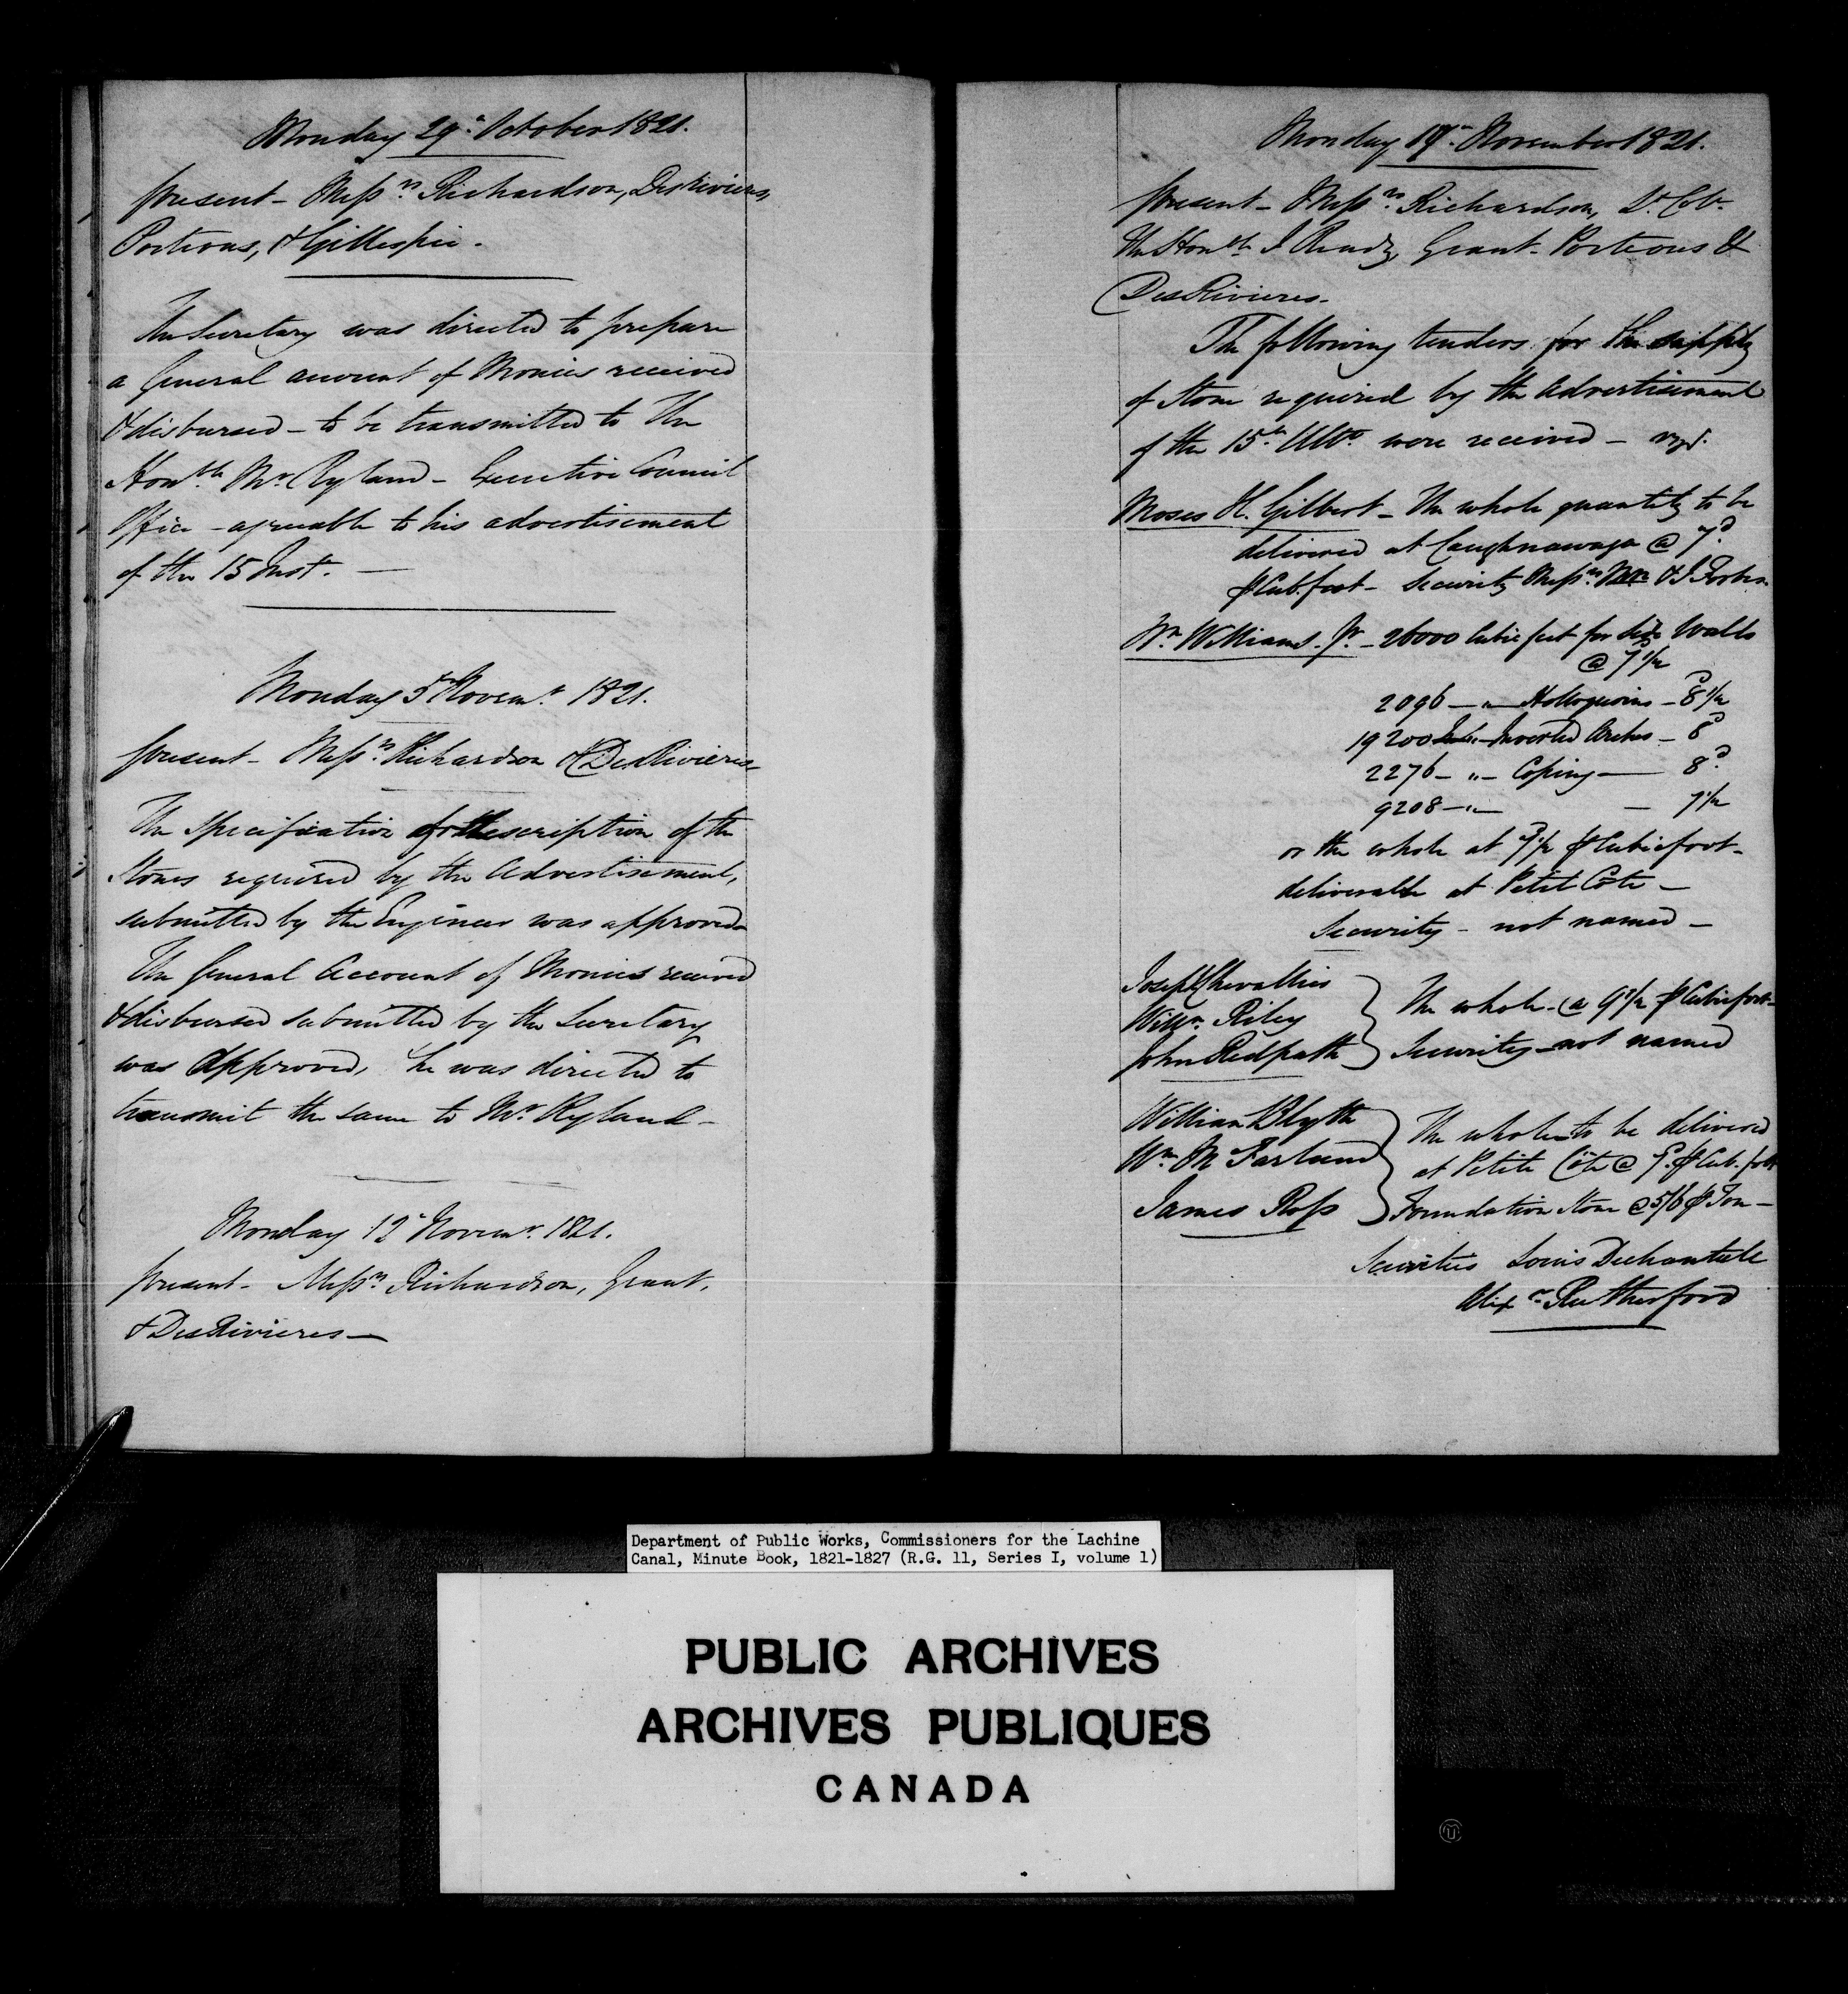 Monday 29th. October 1821.
present - Messrs. Richardson, DesRivieres,
Porteous, & Gillespie.
The Secretary was directed to prepare
a General account of Monies received
& disbursed - to be transmitted to The
Honble. Mr. Ryland - Executive Council
Office - agreeable to his advertisement
of the 15 Inst. -
Monday 5th Novemr. 1821.
present - Messrs. Richardson & DesRivieres
The specification & description of the
Stones required by the Advertisement,
submitted by the Engineer was approved
The General Account of Monies received
& disbursed submitted by the Secretary
was approved, he was directed to
transmit the same to Mr. Ryland -
Monday 12th Novemr. 1821.
present - Messrs. Richardson, Grant,
& DesRivieres -
Monday 19th. November 1821.
present - Messrs. Richardson, Lt. Col.
the Honble. J Ready, Grant - Porteous &
DesRivieres -
The following tenders for the supply
of Stone required by the Advertisement
of the 15th. Ulto. were received - vizt.
Moses H. Gilbert - The whole quantity to be
delivered at Caughnawaga @ 7d.
⅌ Cub. foot - Security Messrs. & J Forbes
Wm. Williams. Jr. - 26000 Cubic feet for side Walls
@ 7d 1/2
2096 - " - Hollowquoins - 8d 1/2
19200 - " - Inverted Arches - 8d
2276 - " - Coping - 8d.
9208 - " - 7 1/2
or the whole at 7d 1/2 ⅌ Cubic foot -
deliverable at Petit Cote -
Security - not named -
Joseph Chevallier
Willm. Riley
John Redpath
The whole - @ 9d 1/2 ⅌ Cubic foot -
Security - not named
William Blyth
Wm. McFarland
James Ross
The whole to be delivered
at Petite Côte @ 7d. ⅌ Cub. foot
Foundation Stone @ 5/6 ⅌ Ton -
Securities Louis Dechantale
Alexr. Rutherford
Department of Public Works, Commissioners for the Lachine
Canal, Minute Book, 1821-1827 (R.G. 11, Series I, volume 1)
PUBLIC ARCHIVES
ARCHIVES PUBLIQUES
CANADA